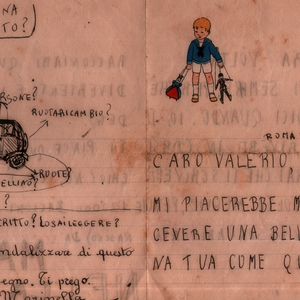 NA
TO?
RUOTARICAMBIO?
RUOTE?
RITTO? LOSAILEGGERE?
ndalizzare di questo
egno. Ti prego.
ROMA
CARO VALERIO
MI PIACEREBBE M
CEVERE UNA BELL
NA TUA COME QU